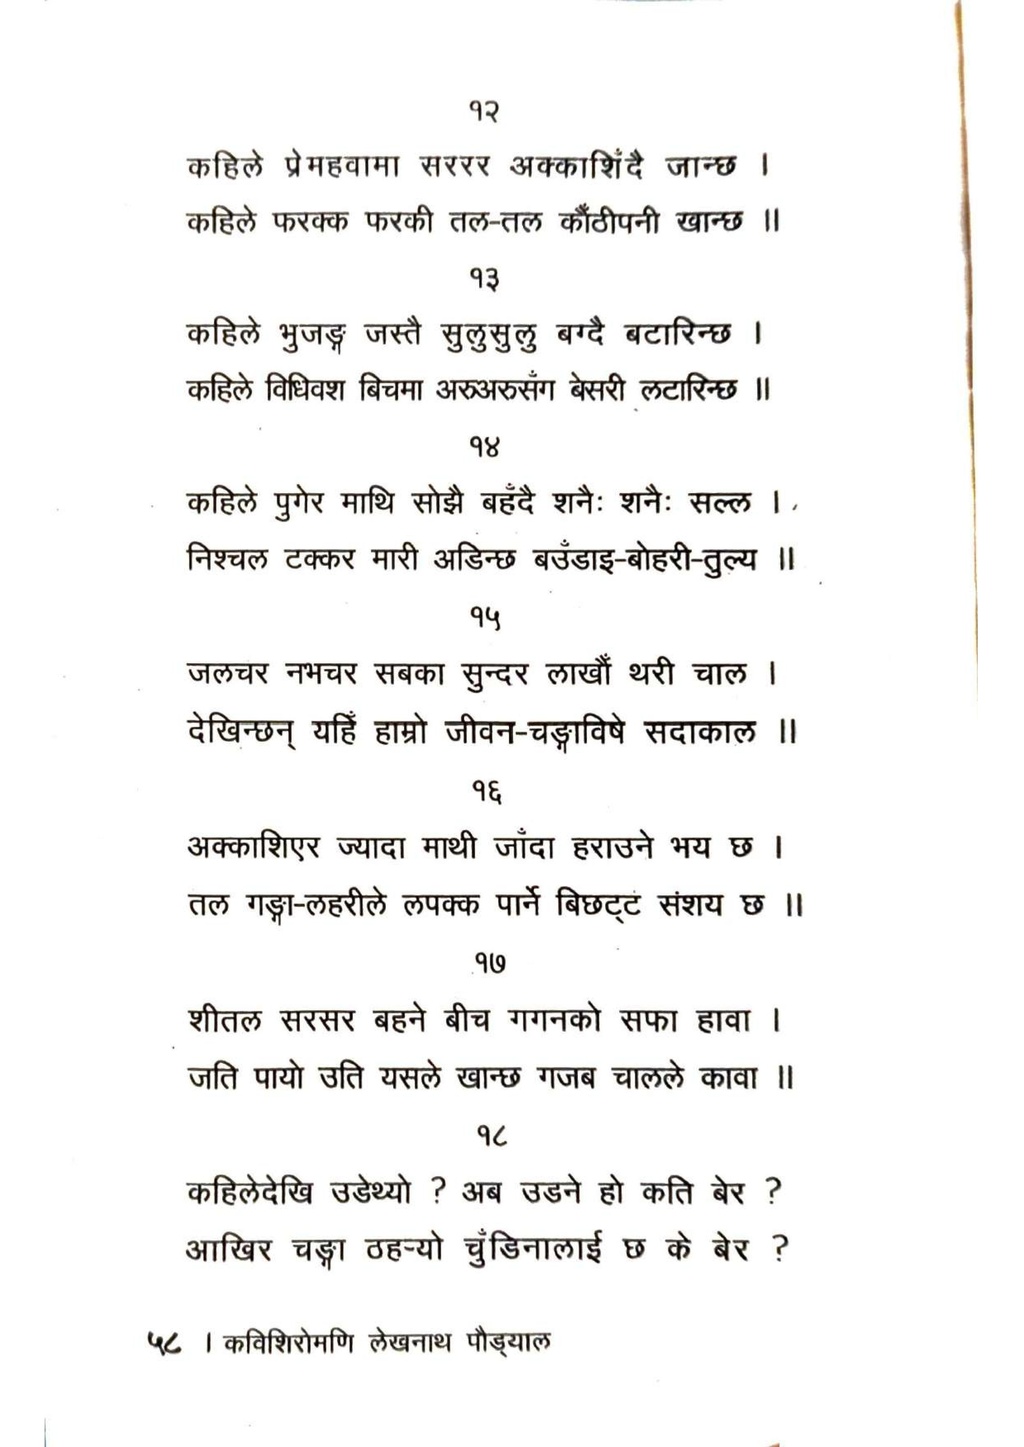 १२
कहिले प्रेमहवामा सररर अक्काशिँदै जान्छ ।
कहिले फरक्क फरकी तल-तल कौँठीपनी खान्छ ॥
१३
कहिले भुजङ्ग जस्तै सुलुसुलु बग्दै बटारिन्छ ।
कहिले विधिवश बिचमा अरुअरुसँग बेसरी लटारिन्छ ॥
१४
कहिले पुगेर माथि सोझै बहँदै शनैः शनैः सल्ल ।
निश्चल टक्कर मारी अडिन्छ बउँडाइ-बोहरी-तुल्य ॥
१५
जलचर नभचर सबका सुन्दर लाखौँ थरी चाल ।
देखिन्छन् यहिँ हाम्रो जीवन-चङ्गाविषे सदाकाल ॥
१६
अक्काशिएर ज्यादा माथी जाँदा हराउने भय छ ।
तल गङ्गा-लहरीले लपक्क पार्ने बिछट्ट संशय छ ॥
१७
शीतल सरसर बहने बीच गगनको सफा हावा ।
जति पायो उति यसले खान्छ गजब चालले कावा ॥
१८
कहिलेदेखि उडेथ्यो ? अब उडने हो कति बेर ?
आखिर चङ्गा ठहर्‍यो चुँडिनालाई छ के बेर ?
५८ । कविशिरोमणि लेखनाथ पौड्याल